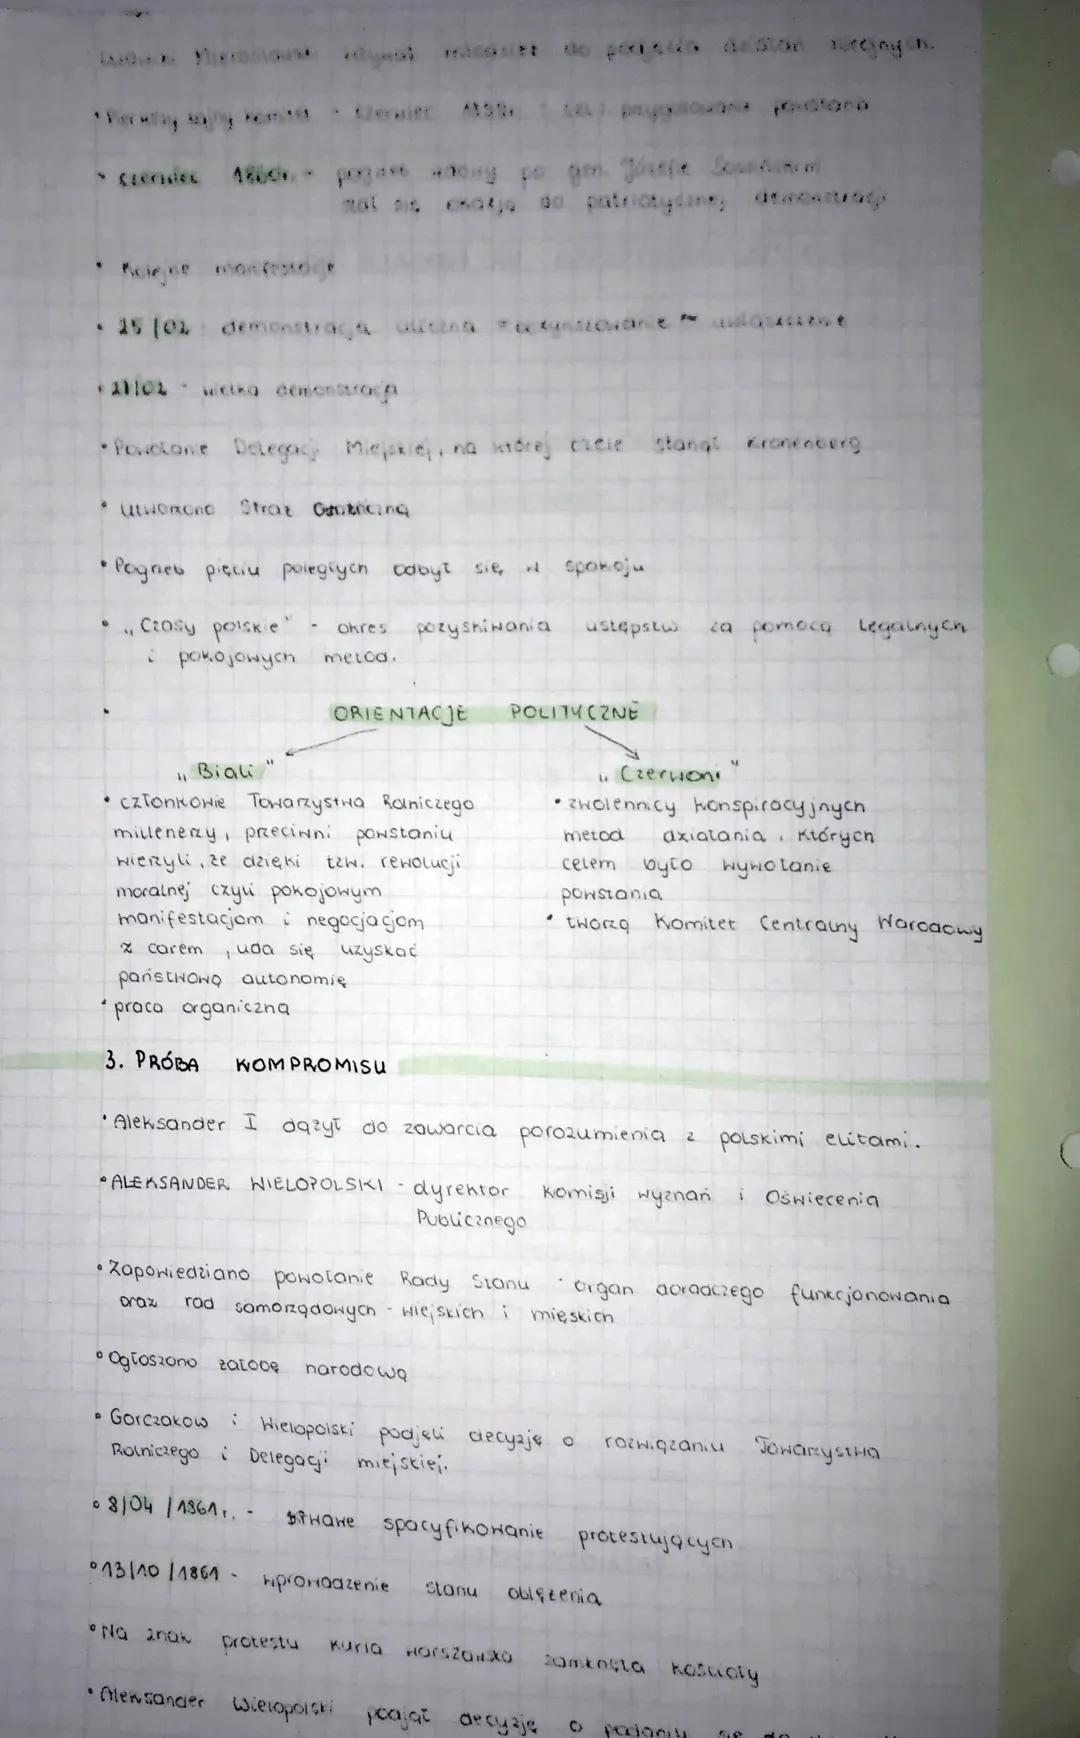 Ludwik Mierosławski wzywał młodzież do podjęcia działań zbrojnych.
• Pierwszy tajny komitet - czerwiec
• czerwiec 1860r. - pogrzeb wdowy po gen. Józefie Sowińskim
stał się okazją do patriotycznej demonstracji
• Kolejne manifestacje
• 25/02 demonstracja uliczna oczynszowanie uwłaszczenie
• 27/02 - wielka demonstracja
• Powołanie Delegacji Miejskiej, na której czele stanął Kronenberg
• Utworzono Straż
• Pogrzeb pięciu poległych odbył się w spokoju
• "Czasy polskie" - okres pozyskiwania ustępstw za pomocą legalnych
i pokojowych metod.
• ORIENTACJE POLITYCZNE
"Biali"
• członkowie Towarzystwa Rolniczego
millenerzy, przeciwni powstaniu
wierzyli, że dzięki tzw. rewolucji
moralnej czyli pokojowym
manifestacjom i negocjacjom
z carem, uda się uzyskać
państwową autonomię
• praca organiczna
"Czerwoni"
• zwolennicy konspiracyjnych
metod działania, których
celem było wywołanie
powstania
• tworzą Komitet Centralny Narodowy
3. PRÓBA KOMPROMISU
• Aleksander I dążył do zawarcia porozumienia z polskimi elitami.
• ALEKSANDER WIELOPOLSKI - dyrektor Komisji Wyznań i Oświecenia
Publicznego
• Zapowiedziano powołanie Rady Stanu - organ doradczego funkcjonowania
oraz rad samorządowych - wiejskich i mięskich
• Ogłoszono żałobę narodową
• Gorczakow i Wielopolski podjęli decyzję o rozwiązaniu Towarzystwa
Rolniczego i Delegacji miejskiej.
• 8/04/1861r. - krwawe spacyfikowanie protestujących
• 13/10/1861 - wprowadzenie stanu oblężenia
• Na znak protestu kuria warszawska zamknęła kościoły
• Aleksander Wielopolski podjął decyzję o podaniu się do